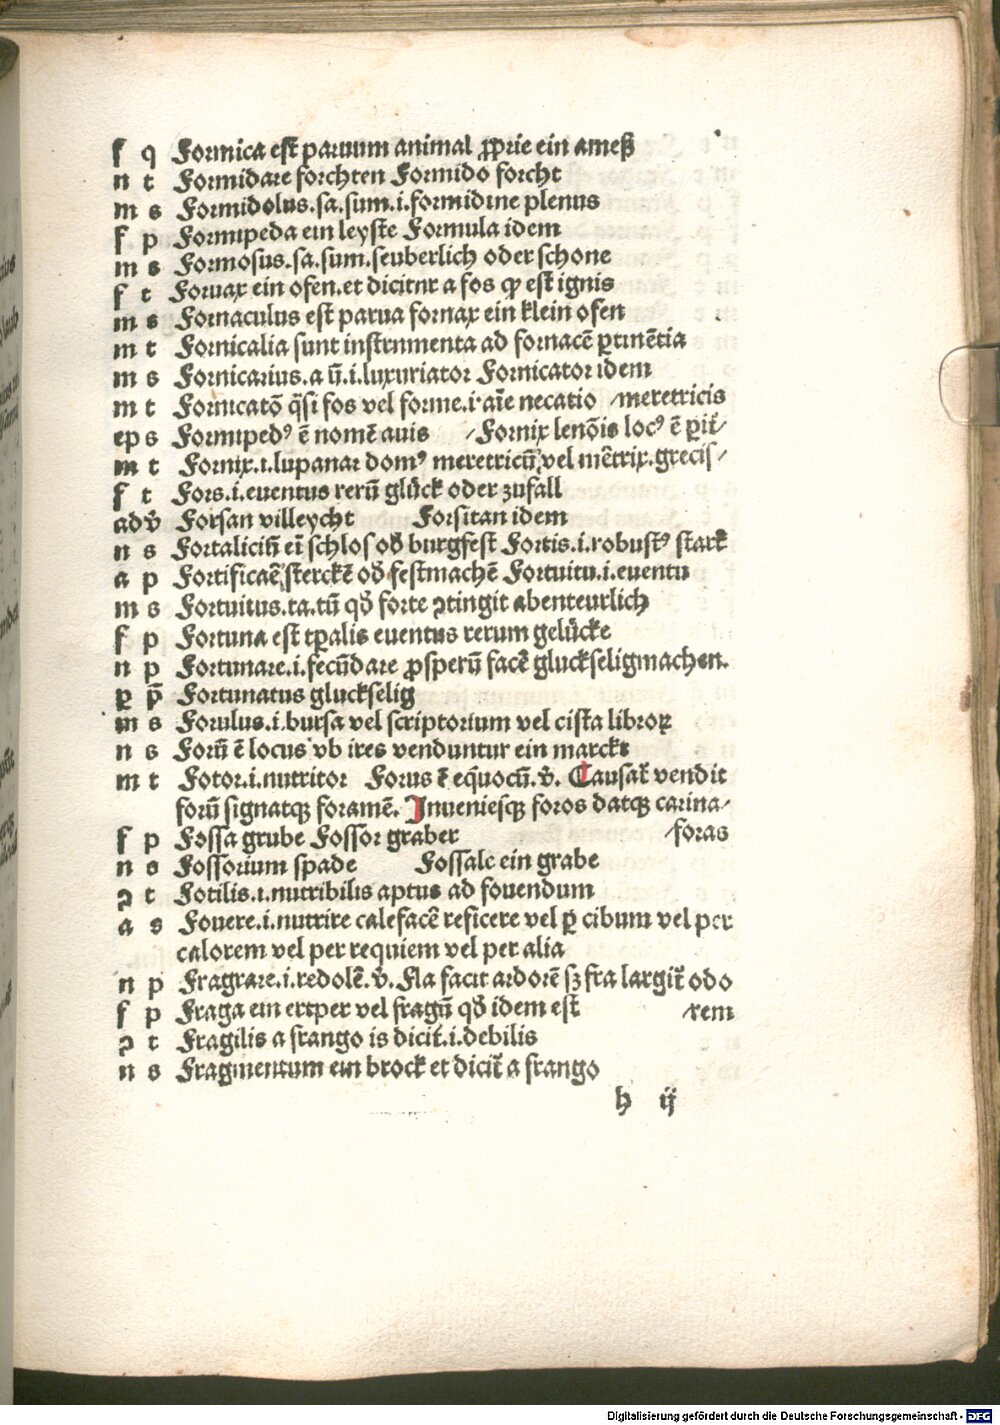 f q Formica est paruum animal ꝓprie ein ameß
n t Formidare forchten Formido forcht
m s Formidolus.sa.sum.i.formidine plenus
f p Formipeda ein leyste Formula idem
m s Formosus.sa.sum.seuberlich oder schone
f t Fornax ein ofen.et dicitur a fos ꝙ est ignis
m s Fornaculus est parua fornax ein klein ofen
m t Fornicalia sunt instrumenta ad fornacē ꝑtinētia
m s Fornicarius.a ū.i.luxuriator Fornicator idem
m t Fornicatō q̄si fos vel forme.i.aīe necatio /meretricis
ep s Fornipedꝰ ē nomē auis /Fornix lenōis locꝰ ē ꝑit̄/
m t Fornix.i.lupanar domꝰ meretricū vel mētrix.grecis/
f t Fors.i.euentus rerū glück oder zufall
adv̄ Forsan villeycht Forsitan idem
n s Fortaliciū eī schlos od̄ burgfest Fortis.i.robustꝰ starck
a p Fortificaē sterckē od̄ festmachē Fortuitu.i.euentu
m s Fortuitus.ta.tū qd̄ forte ꝯtingit abenteurlich
f p Fortuna est tꝑalis euentus rerum gelücke
n p Fortunare.i.fecūdare ꝓsperū facē gluckseligmachen.
ꝑ p̄ Fortunatus gluckselig
m s Forulus.i.bursa vel scriptorium vel cista libroꝝ
n s Forū ē locus vb ires venduntur ein marckt
m t Fotor.i.nutritor Forus ē eq̄uocū.v̄. Causat̄ vendit
forū signatqꝫ foramē. Inueniesqꝫ foros datqꝫ carina/
f p Fossa grube Fossor graber /foras
n s Fossorium spade Fossale ein grabe
ꝯ t Fotilis.i.nutribilis aptus ad fouendum
a s Fouere.i.nutrire calefacē reficere vel ꝑ cibum vel per
calorem vel per requiem vel per alia
n p Fragrare.i.redolē.v̄. Fla facit ardorē sꝫ fra largit̄ odo
f p Fraga ein ertper vel fragū qd̄ idem est /rem
ꝯ t Fragilis a frango is dicit̄.i.debilis
n s Fragmentum ein brock et dicit̄ a frango
h ij
Digitalisierung gefördert durch die Deutsche Forschungsgemeinschaft - DFG